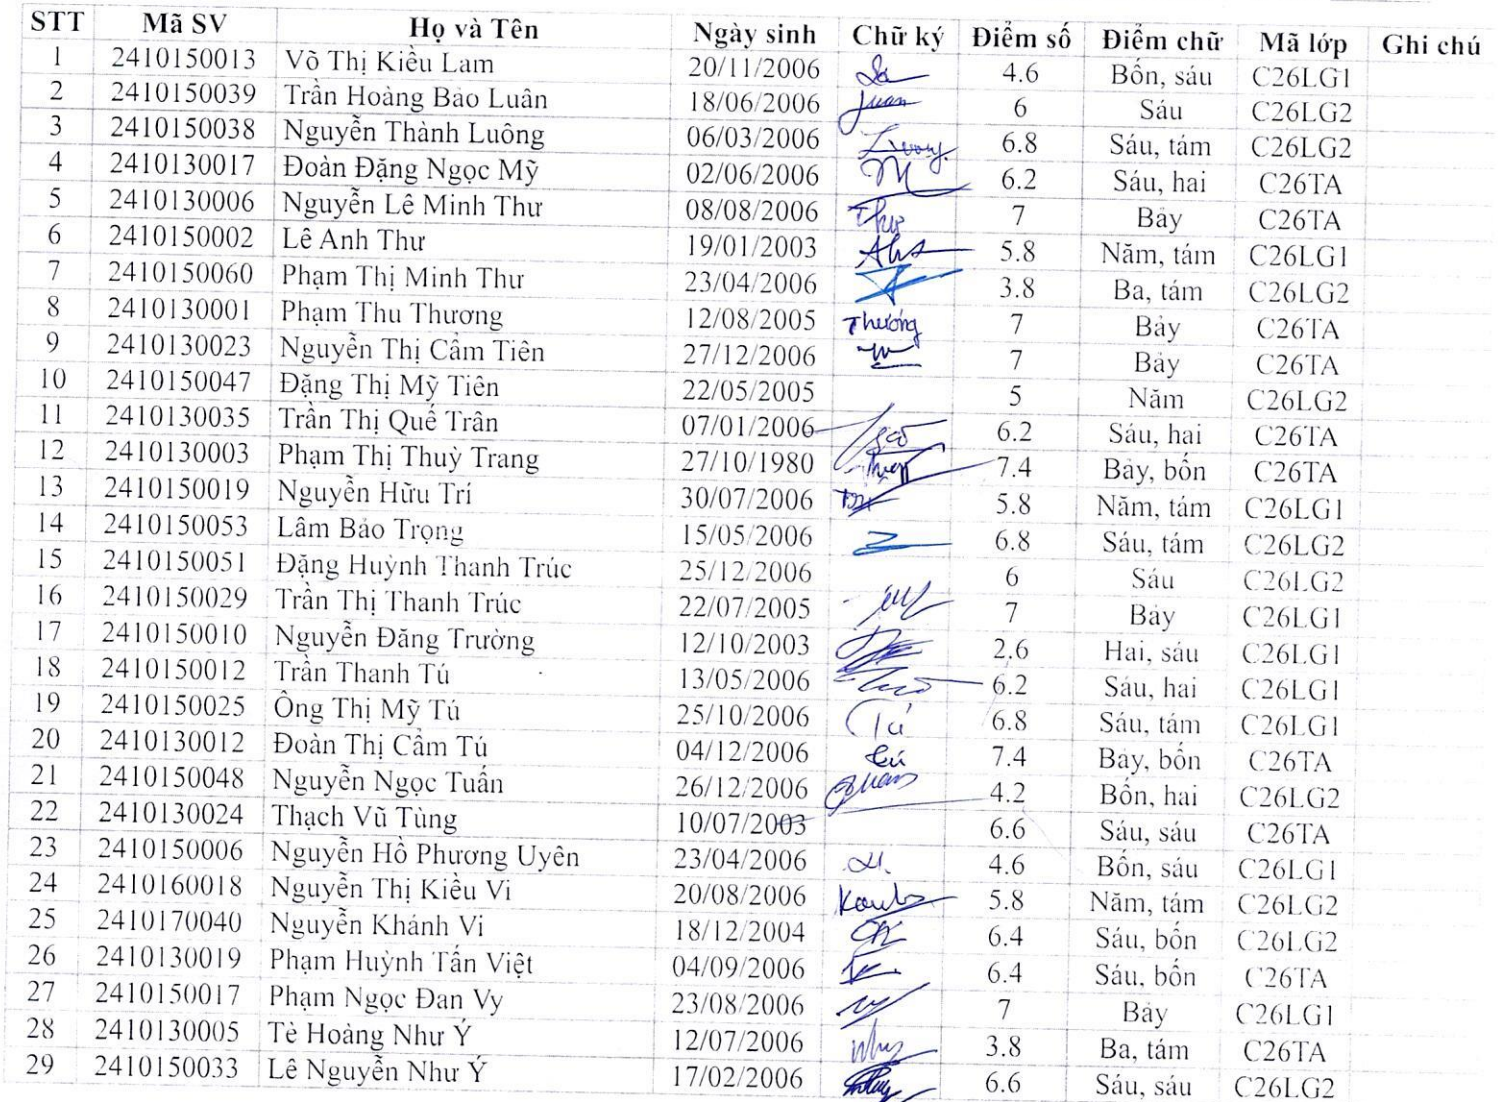 STT Mã SV Họ và Tên Ngày sinh Chữ ký Điểm số Điểm chữ Mã lớp Ghi chú
1 2410150013 Võ Thị Kiều Lam 20/11/2006 4.6 Bốn, sáu C26LG1
2 2410150039 Trần Hoàng Bảo Luân 18/06/2006 6 Sáu C26LG2
3 2410150038 Nguyễn Thành Luông 06/03/2006 6.8 Sáu, tám C26LG2
4 2410130017 Đoàn Đặng Ngọc Mỹ 02/06/2006 6.2 Sáu, hai C26TA
5 2410130006 Nguyễn Lê Minh Thư 08/08/2006 Thư 7 Bảy C26TA
6 2410150002 Lê Anh Thư 19/01/2003 5.8 Năm, tám C26LG1
7 2410150060 Phạm Thị Minh Thư 23/04/2006 3.8 Ba, tám C26LG2
8 2410130001 Phạm Thu Thương 12/08/2005 Thương 7 Bảy C26TA
9 2410130023 Nguyễn Thị Cẩm Tiên 27/12/2006 7 Bảy C26TA
10 2410150047 Đặng Thị Mỹ Tiên 22/05/2005 5 Năm C26LG2
11 2410130035 Trần Thị Quế Trân 07/01/2006 6.2 Sáu, hai C26TA
12 2410130003 Phạm Thị Thuỳ Trang 27/10/1980 7.4 Bảy, bốn C26TA
13 2410150019 Nguyễn Hữu Trí 30/07/2006 5.8 Năm, tám C26LG1
14 2410150053 Lâm Bảo Trọng 15/05/2006 6.8 Sáu, tám C26LG2
15 2410150051 Đặng Huỳnh Thanh Trúc 25/12/2006 6 Sáu C26LG2
16 2410150029 Trần Thị Thanh Trúc 22/07/2005 7 Bảy C26LG1
17 2410150010 Nguyễn Đăng Trường 12/10/2003 2.6 Hai, sáu C26LG1
18 2410150012 Trần Thanh Tú 13/05/2006 6.2 Sáu, hai C26LG1
19 2410150025 Ông Thị Mỹ Tú 25/10/2006 Tú 6.8 Sáu, tám C26LG1
20 2410130012 Đoàn Thị Cẩm Tú 04/12/2006 tú 7.4 Bảy, bốn C26TA
21 2410150048 Nguyễn Ngọc Tuấn 26/12/2006 4.2 Bốn, hai C26LG2
22 2410130024 Thạch Vũ Tùng 10/07/2003 6.6 Sáu, sáu C26TA
23 2410150006 Nguyễn Hồ Phương Uyên 23/04/2006 4.6 Bốn, sáu C26LG1
24 2410160018 Nguyễn Thị Kiều Vi 20/08/2006 5.8 Năm, tám C26LG2
25 2410170040 Nguyễn Khánh Vi 18/12/2004 6.4 Sáu, bốn C26LG2
26 2410130019 Phạm Huỳnh Tấn Việt 04/09/2006 6.4 Sáu, bốn C26TA
27 2410150017 Phạm Ngọc Đan Vy 23/08/2006 7 Bảy C26LG1
28 2410130005 Tè Hoàng Như Ý 12/07/2006 3.8 Ba, tám C26TA
29 2410150033 Lê Nguyễn Như Ý 17/02/2006 6.6 Sáu, sáu C26LG2